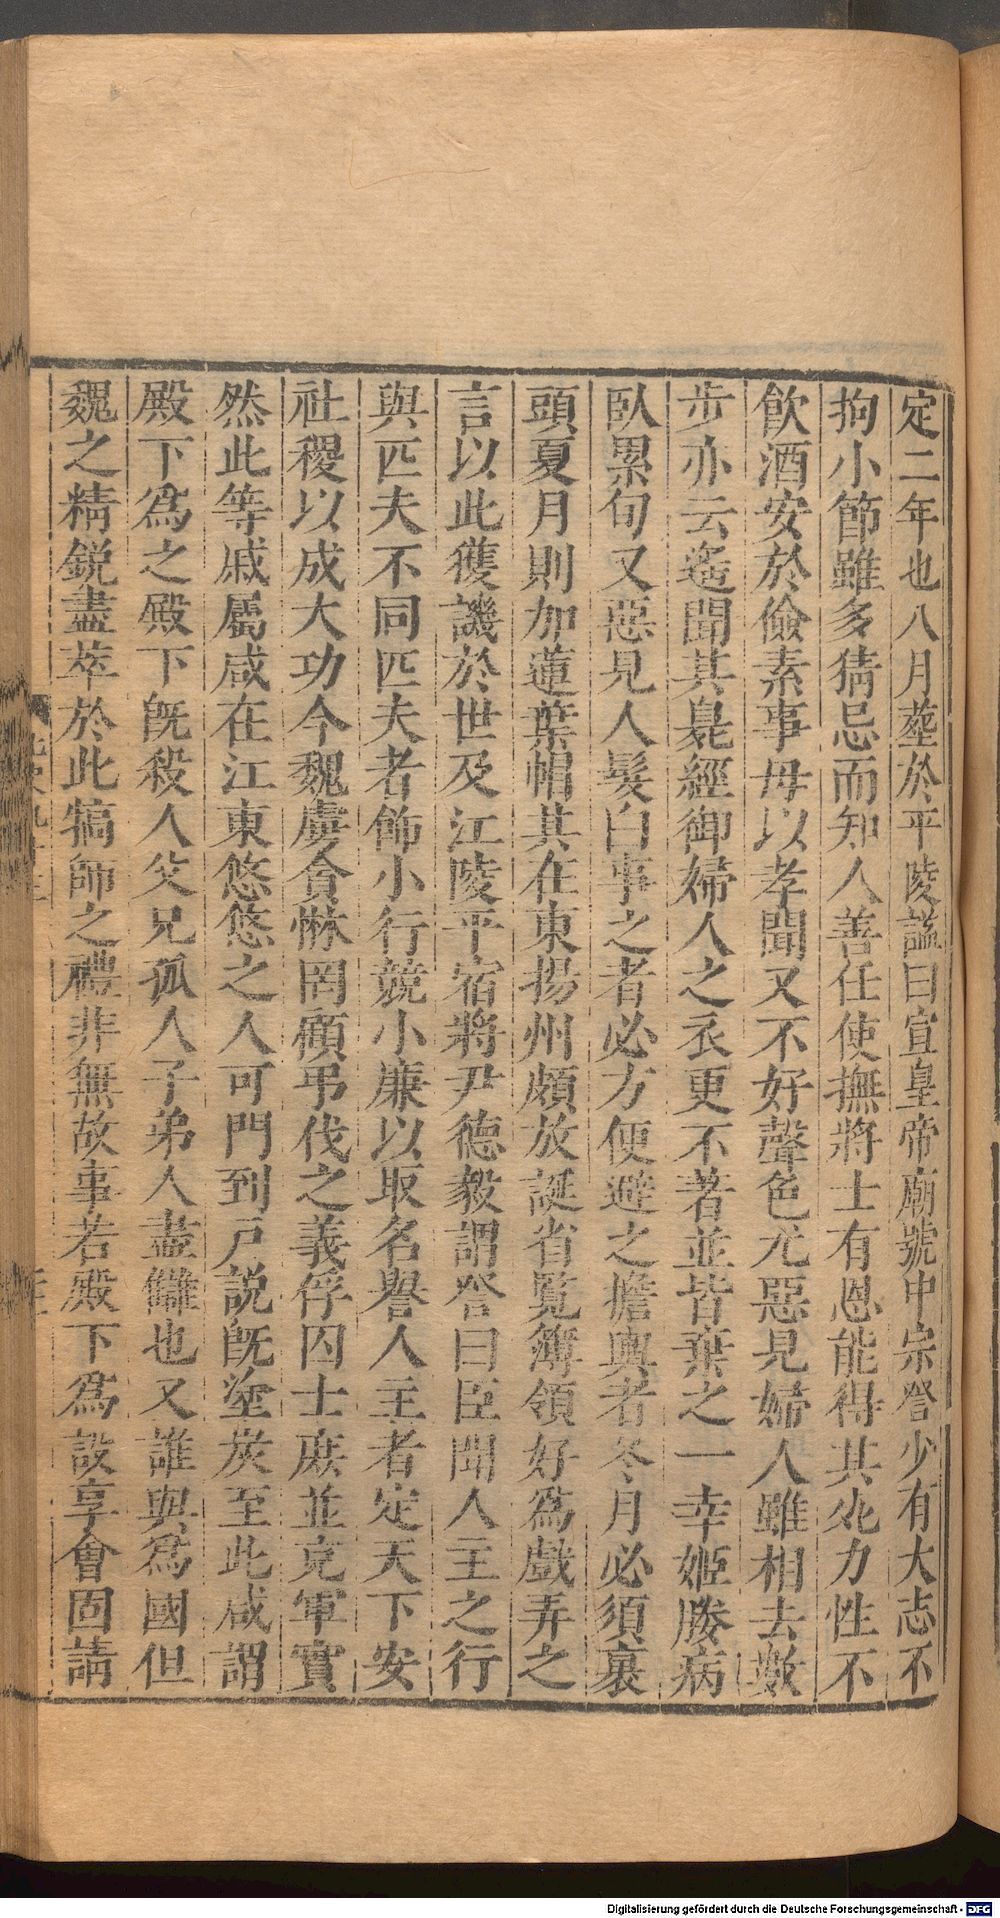 定二年也八月葬於平陵諡曰宣皇帝廟號中宗詧少有大志不
拘小節雖多猜忌而知人善任使撫將士有恩能得其死力性不
飲酒安於儉素事母以孝聞又不好聲色尤惡見婦人雖相去數
步亦云遙聞其臭經御婦人之衣更不著並皆棄之一幸姬媵病
臥累旬又惡見人髮白事之者必方便避之擔輿者冬月必須裹
頭夏月則加蓮葉帽其在東揚州頗放誕省覧簿領好爲戲弄之
言以此獲譏於世及江陵平宿將尹德毅謂詧曰臣聞人主之行
與匹夫不同匹夫者飾小行競小廉以取名譽人主者定天下安
社稷以成大功今魏虜貪惏罔顧弔伐之義俘囚士庶並充軍實
然此等戚屬咸在江東悠悠之人可門到戶説旣塗炭至此咸謂
殿下爲之殿下旣殺人父兄孤人子弟人盡讎也又誰與爲國但
魏之精鋭盡萃於此犒師之禮非無故事若殿下爲設享會固請
Digitalisierung gefördert durch die Deutsche Forschungsgemeinschaft - DFG